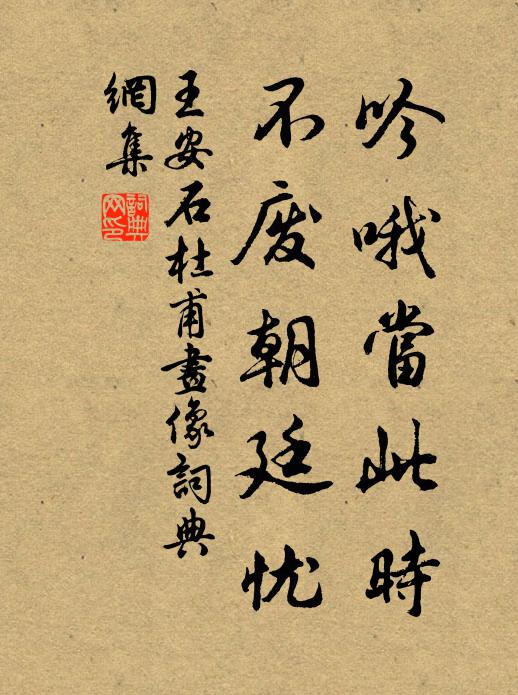 吟哦當此時
不废朝廷忧
王安石杜甫畫像詞典
網集
詞典
网印